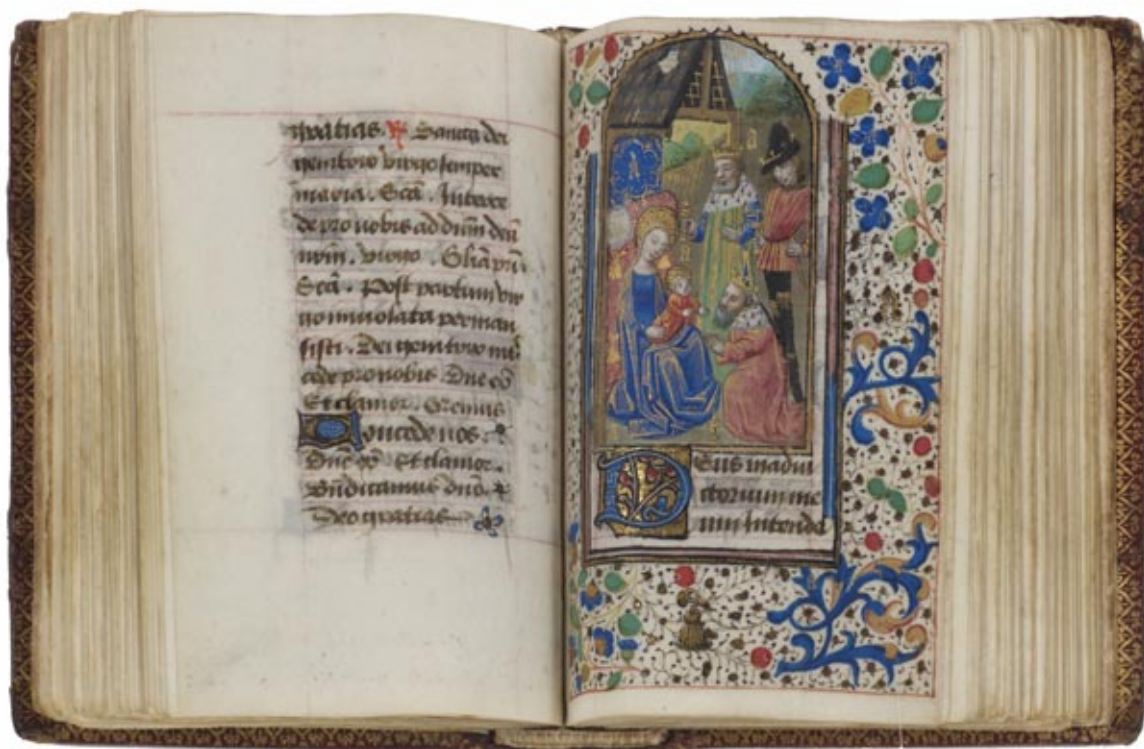 gratias. R Sancta dei
genitrix virgo semper
maria. Scā. Interce
de pro nobis ad dnm deū
nrm. virgo. Glia pri
Scā. Post partum vir
go inviolata perman
sisti. Dei genitrix int
cede pro nobis. Dne eō
Et clamor. Oremus
Concede nos.
Dne eō Et clamor.
Bndicamus dnō.
Deo gratias
Deus in adiu
torium me
um intende